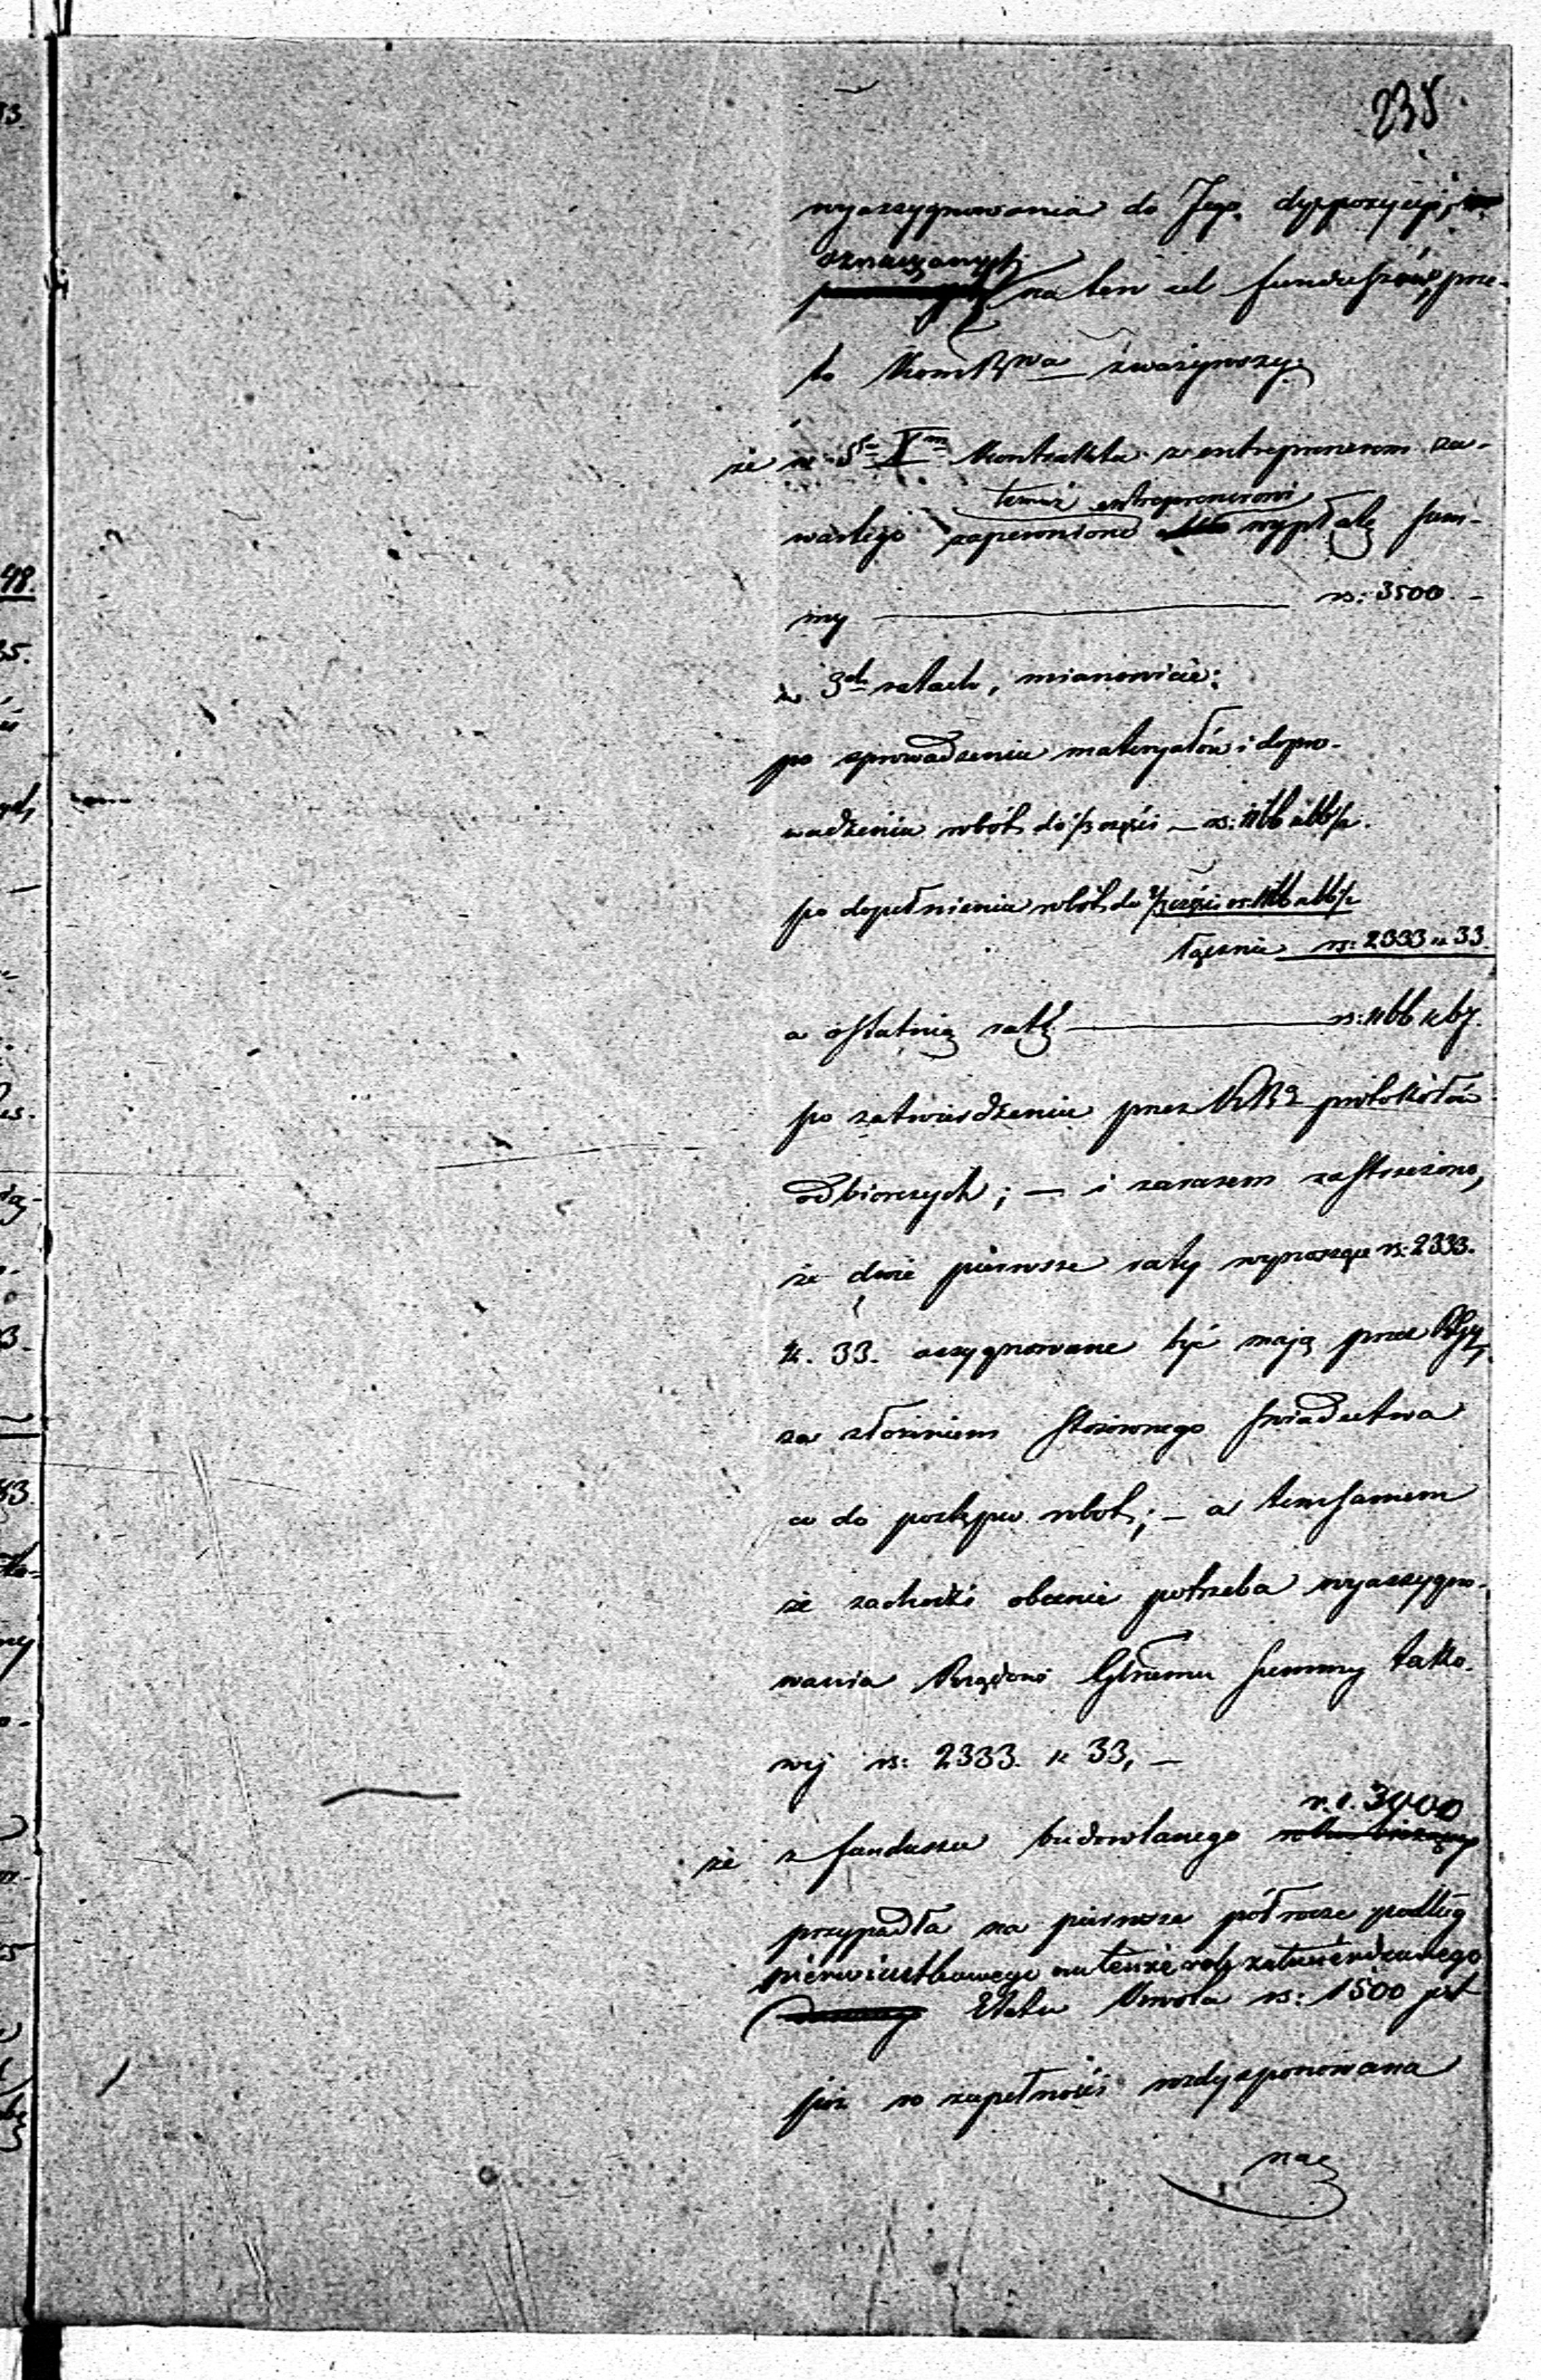 238
wyassygnowania do Jego dyspozycyi,
oznaczonych
na ten cel funduszów, prze-
to KomRwa zważywszy
że w §fie Xm Kontraktu z entreprenerem za-
temuż entreprenerowi
wartego zapewniono wypłatę sum-
my rs: 3500. –
w 3ch ratach, mianowicie:
po sprowadzeniu materyałów i dopro-
wadzeniu robót do ⅓ części – rs: 1166 k 66½.
po dopełnieniu robót do ⅔ części rs. 1166 k 66½
łącznie rs: 2333 k 33.
a ostatnią ratę rs: 1166 k 67.
po zatwierdzeniu przez protokółów
odbiorczych; – i zarazem zastrzeżono,
że dwie pierwsze raty wynoszące rs: 2333.
k. 33. assygnowane być mają przez
za złożeniem stosownego świadectwa
co do postępu robót; – a temsamem
że zachodzi obecnie potrzeba wyassygno-
wania Rządowi Gbrnemu summy tako-
wej rs: 2333. k 33, –
że z funduszu budowlanego
przypadła na pierwsze półrocze podług
pierwiastkowego na tenże rok zatwierdzonego
Etatu kwota rs: 1500 jest
już w zupełności rozdysponowana